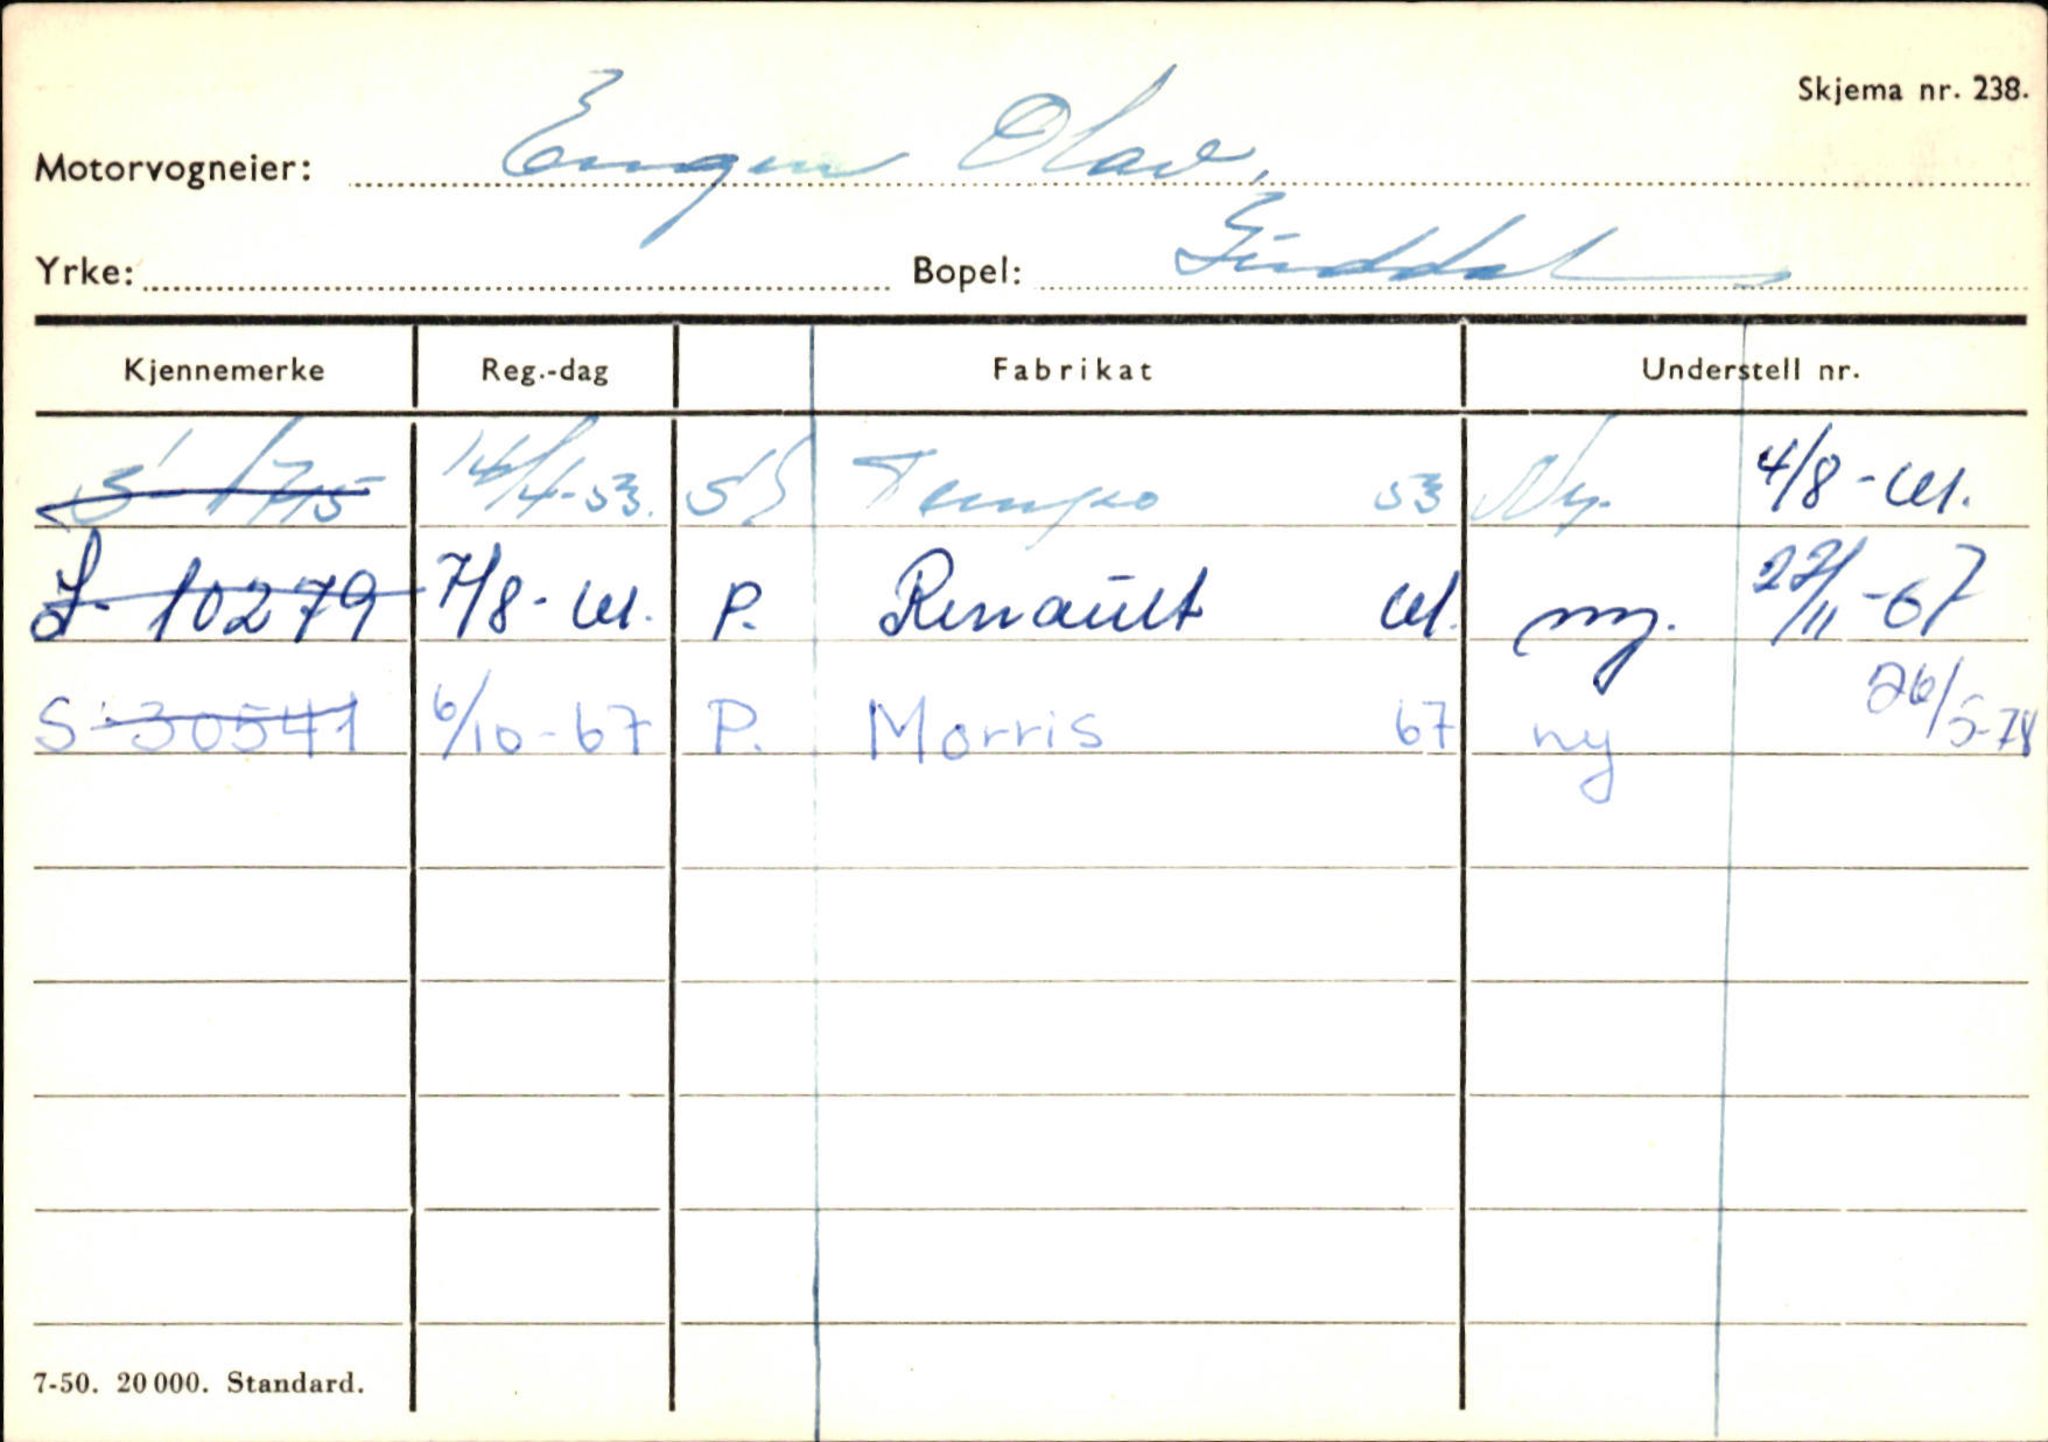 Skjema nr. 238.
Motorvogneier: Engen Olav,
Yrke: Bopel:
Kjennemerke Reg.-dag Fabrikat Understell nr.
S-1715 14/4-53. Tempo 53 Ny. 4/8-61.
S-10279 7/8-61. P. Renault 61. ny. 22/11-67
S-30541 6/10-67 P. Morris 67 ny 26/5-78
7-50. 20 000. Standard.